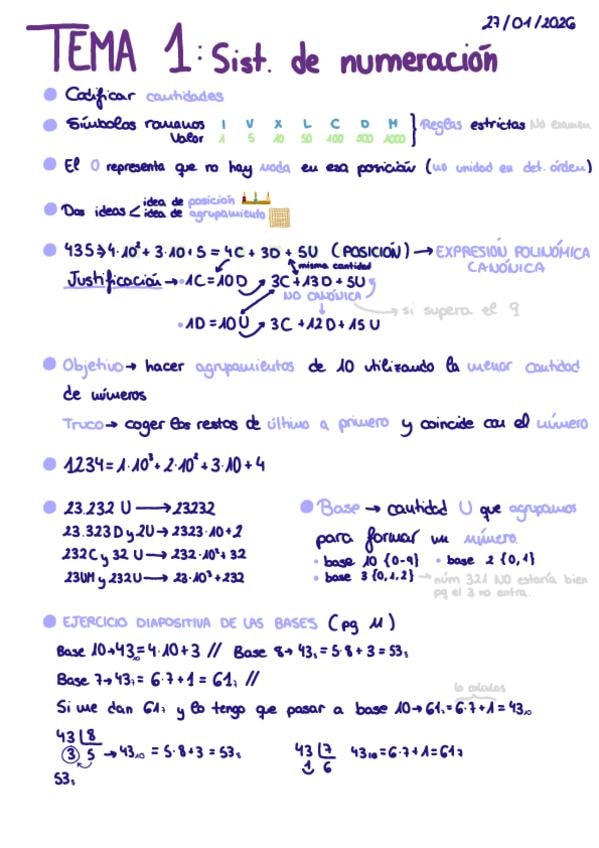 27/01/2026
TEMA 1: Sist. de numeración
Codificar cantidades
Símbolos romanos I V X L C D M } Reglas estrictas No examen
Valor 1 5 10 50 100 500 1000
El 0 representa que no hay nada en esa posición (no unidad en det. órden)
Dos ideas < idea de posición
idea de agrupamiento
435 → 4·10² + 3·10 + 5 = 4C + 3D + 5U (POSICIÓN) → EXPRESIÓN POLINÓMICA CANÓNICA
misma cantidad
Justificación → · 1C = 10D 3C + 13D + 5U
NO CANÓNICA → si supera el 9
· 1D = 10U 3C + 12D + 15U
Objetivo → hacer agrupamientos de 10 utilizando la menor cantidad
de números
Truco → coger los restos de último a primero y coincide con el número
1234 = 1·10³ + 2·10² + 3·10 + 4
23.232 U → 23232
23.323 D y 2U → 2323·10 + 2
232 C y 32 U → 232·10² + 32
23UM y 232U → 23·10³ + 232
Base → cantidad U que agrupamos
para formar un número
· base 10 {0-9} · base 2 {0,1}
· base 3 {0,1,2} → núm 321 NO estaría bien
pq el 3 no entra.
EJERCICIO DIAPOSITIVA DE LAS BASES (pg 11)
Base 10 → 43₁₀ = 4·10 + 3 // Base 8 → 43₈ = 5·8 + 3 = 53₈
Base 7 → 43₇ = 6·7 + 1 = 61₇ //
lo calculas
Si me dan 61₇ y lo tengo que pasar a base 10 → 61₇ = 6·7 + 1 = 43₁₀
43 8
3 5 → 43₁₀ = 5·8 + 3 = 53₈
53₈
43 7 43₁₀ = 6·7 + 1 = 61₇
1 6